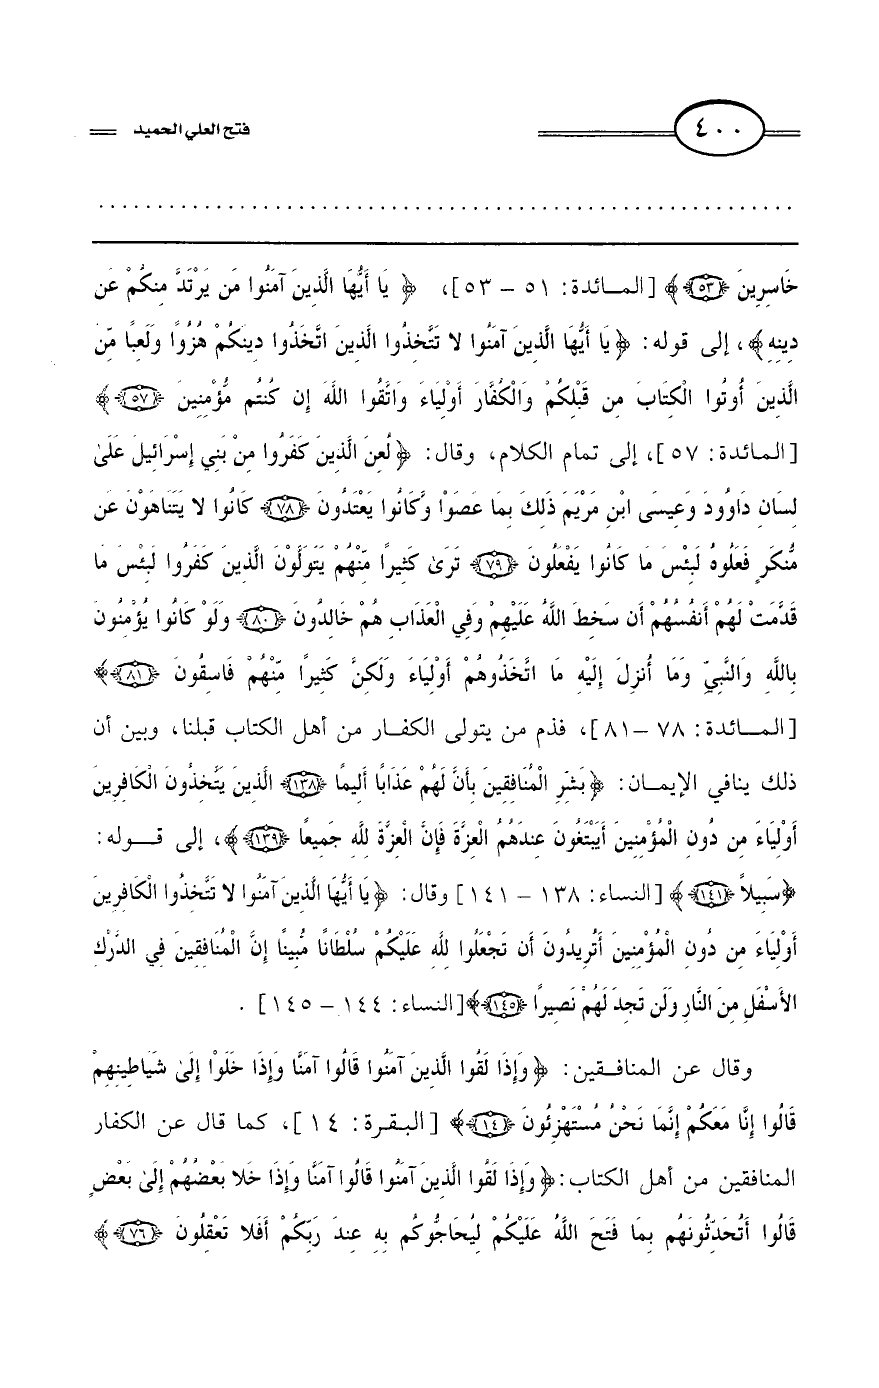 ٤٠٠ فتح العلي الحميد
خَاسِرِينَ ﴿٥٣﴾ ﴾ [المـائدة: ٥١ – ٥٣]، ﴿ يَا أَيُّهَا الَّذِينَ آمَنُوا مَن يَرْتَدَّ مِنكُمْ عَن
دِينِهِ ﴾، إلى قوله: ﴿ يَا أَيُّهَا الَّذِينَ آمَنُوا لا تَتَّخِذُوا الَّذِينَ اتَّخَذُوا دِينَكُمْ هُزُوًا وَلَعِبًا مِّنَ
الَّذِينَ أُوتُوا الْكِتَابَ مِن قَبْلِكُمْ وَالْكُفَّارَ أَوْلِيَاءَ وَاتَّقُوا اللَّهَ إِن كُنتُم مُّؤْمِنِينَ ﴿٥٧﴾ ﴾
[المـائدة: ٥٧]، إلى تمام الكلام، وقال: ﴿ لُعِنَ الَّذِينَ كَفَرُوا مِنْ بَنِي إِسْرَائِيلَ عَلَىٰ
لِسَانِ دَاوُودَ وَعِيسَى ابْنِ مَرْيَمَ ذَلِكَ بِمَا عَصَوْا وَّكَانُوا يَعْتَدُونَ ﴿٧٨﴾ كَانُوا لا يَتَنَاهَوْنَ عَن
مُّنكَرٍ فَعَلُوهُ لَبِئْسَ مَا كَانُوا يَفْعَلُونَ ﴿٧٩﴾ تَرَىٰ كَثِيرًا مِّنْهُمْ يَتَوَلَّوْنَ الَّذِينَ كَفَرُوا لَبِئْسَ مَا
قَدَّمَتْ لَهُمْ أَنفُسُهُمْ أَن سَخِطَ اللَّهُ عَلَيْهِمْ وَفِي الْعَذَابِ هُمْ خَالِدُونَ ﴿٨٠﴾ وَلَوْ كَانُوا يُؤْمِنُونَ
بِاللَّهِ وَالنَّبِيِّ وَمَا أُنزِلَ إِلَيْهِ مَا اتَّخَذُوهُمْ أَوْلِيَاءَ وَلَكِنَّ كَثِيرًا مِّنْهُمْ فَاسِقُونَ ﴿٨١﴾ ﴾
[المـــائدة: ٧٨ –٨١]، فذم من يتولى الكفـار من أهل الكتاب قبلنا، وبين أن
ذلك ينافي الإيمـان: ﴿ بَشِّرِ الْمُنَافِقِينَ بِأَنَّ لَهُمْ عَذَابًا أَلِيمًا ﴿١٣٨﴾ الَّذِينَ يَتَّخِذُونَ الْكَافِرِينَ
أَوْلِيَاءَ مِن دُونِ الْمُؤْمِنِينَ أَيَبْتَغُونَ عِندَهُمُ الْعِزَّةَ فَإِنَّ الْعِزَّةَ لِلَّهِ جَمِيعًا ﴿١٣٩﴾ ﴾، إلى قــوله:
﴿ سَبِيلاً ﴿١٤١﴾ ﴾ [النساء: ١٣٨ – ١٤١] وقال: ﴿ يَا أَيُّهَا الَّذِينَ آمَنُوا لا تَتَّخِذُوا الْكَافِرِينَ
أَوْلِيَاءَ مِن دُونِ الْمُؤْمِنِينَ أَتُرِيدُونَ أَن تَجْعَلُوا لِلَّهِ عَلَيْكُمْ سُلْطَانًا مُّبِينًا إِنَّ الْمُنَافِقِينَ فِي الدَّرْكِ
الأَسْفَلِ مِنَ النَّارِ وَلَن تَجِدَ لَهُمْ نَصِيرًا ﴿١٤٥﴾ ﴾ [النساء: ١٤٤ – ١٤٥] .
وقال عن المنافـقين: ﴿ وَإِذَا لَقُوا الَّذِينَ آمَنُوا قَالُوا آمَنَّا وَإِذَا خَلَوْا إِلَىٰ شَيَاطِينِهِمْ
قَالُوا إِنَّا مَعَكُمْ إِنَّمَا نَحْنُ مُسْتَهْزِئُونَ ﴿١٤﴾ ﴾ [البقرة: ١٤]، كما قال عن الكفار
المنافقين من أهل الكتاب: ﴿ وَإِذَا لَقُوا الَّذِينَ آمَنُوا قَالُوا آمَنَّا وَإِذَا خَلا بَعْضُهُمْ إِلَىٰ بَعْضٍ
قَالُوا أَتُحَدِّثُونَهُم بِمَا فَتَحَ اللَّهُ عَلَيْكُمْ لِيُحَاجُّوكُم بِهِ عِندَ رَبِّكُمْ أَفَلا تَعْقِلُونَ ﴿٧٦﴾ ﴾